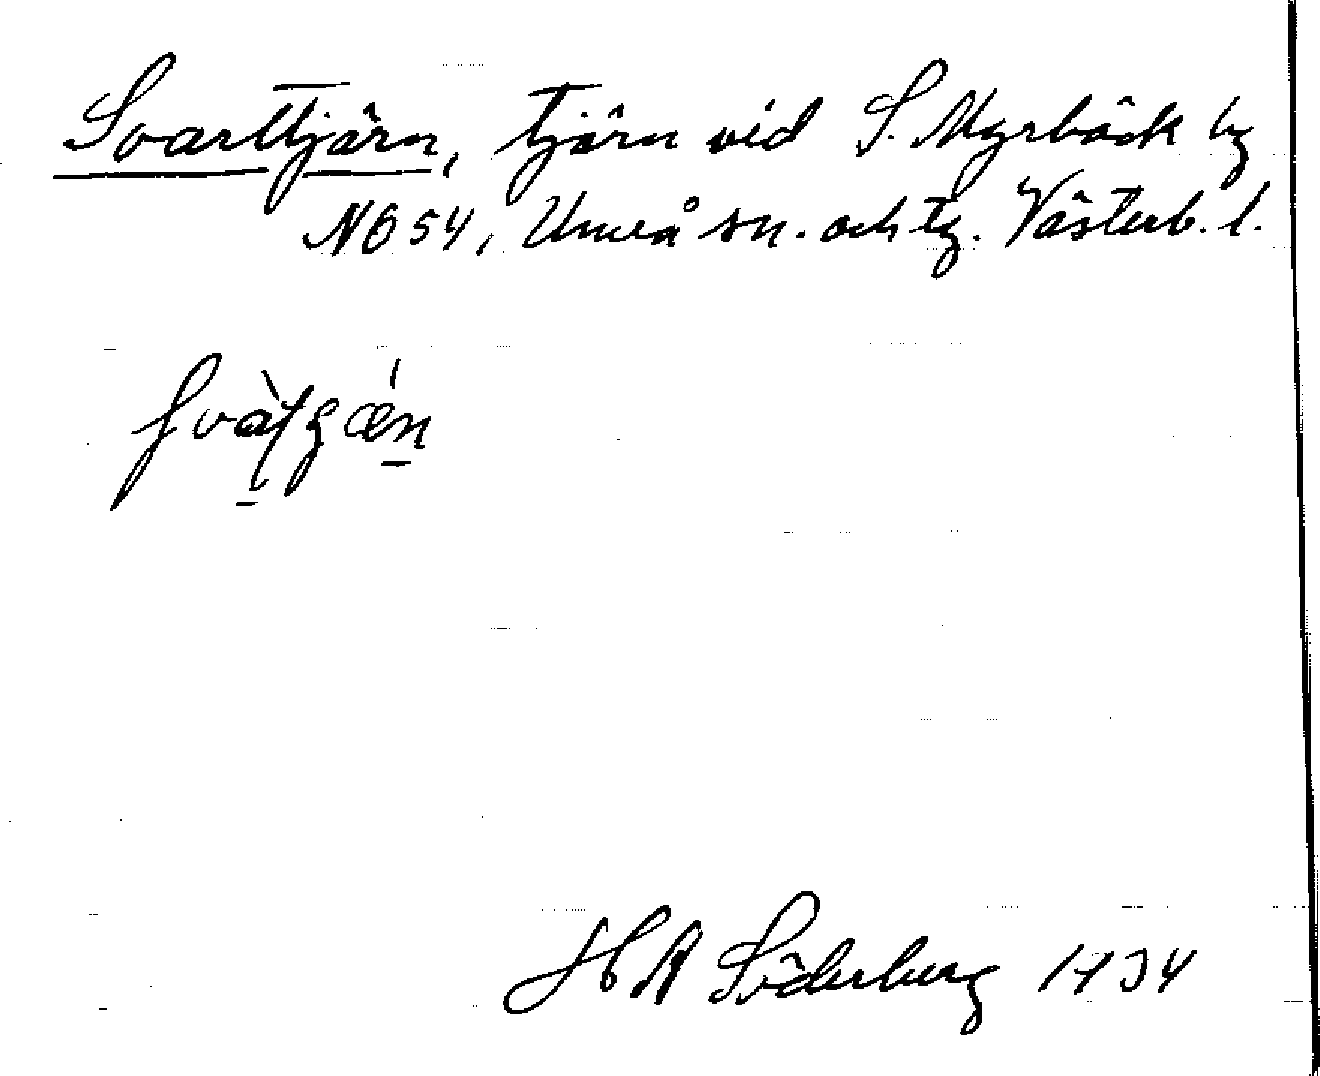 Svarttjärn, tjärn vid S. Myrbäck by
N654, Umeå sn. och tg. Västerb. l.
H A Söderberg 1934